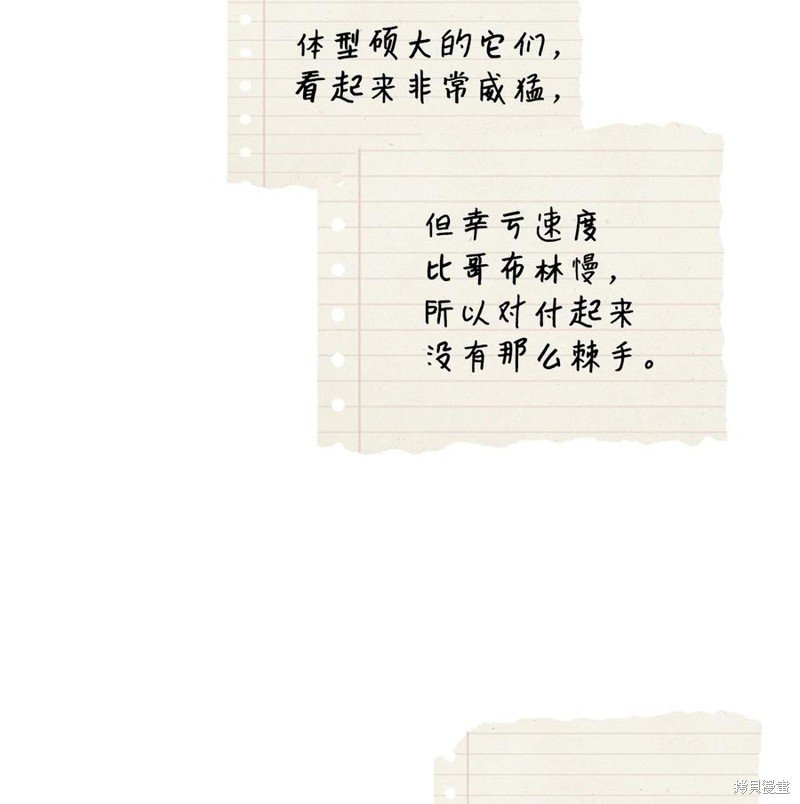 体型硕大的它们，
看起来非常威猛，
但幸亏速度
比哥布林慢，
所以对付起来
没有那么棘手。
拷貝漫畫